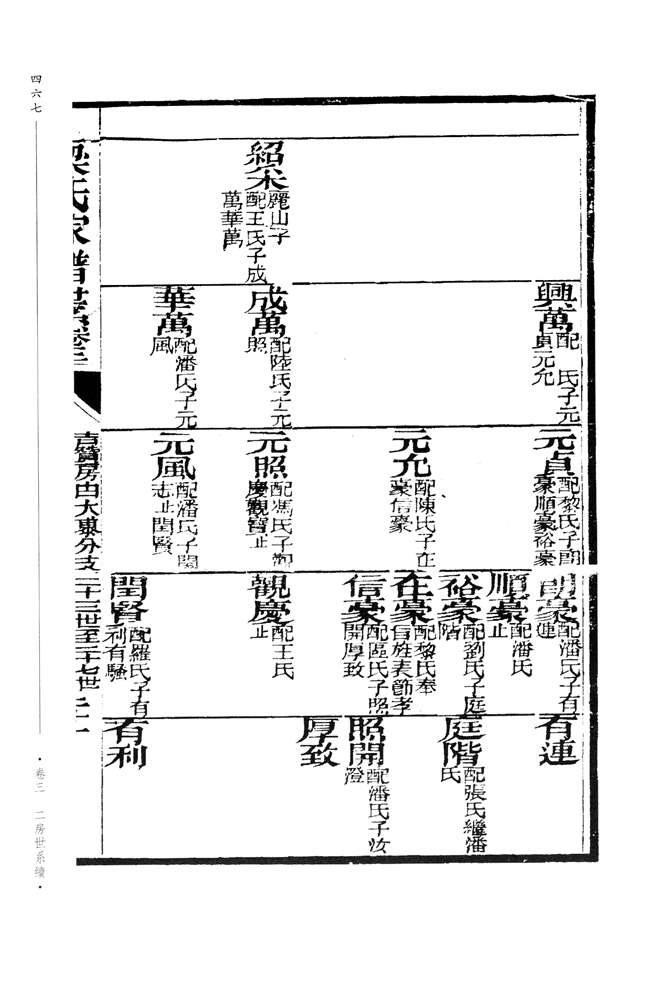 紹宋
麗山子
配王氏子成
萬華萬
興萬
配 氏子元
貞元允
成萬
配陸氏子元
照
華萬
配潘氏子元
風
元貞
配黎氏子朗
豪順豪裕豪
元允
配陳氏子在
豪信豪
元照
配馮氏子觀
慶觀寶止
元風
配潘氏子閏
志止閏賢
朗豪
配潘氏子有
連
順豪
配潘氏
止
裕豪
配劉氏子庭
階
在豪
配黎氏奉
旨旌表節孝
信豪
配區氏子照
開厚致
觀慶
配王氏
止
閏賢
配羅氏子有
利有騷
有連
庭階
配張氏繼潘
氏
照開
配潘氏子汝
澄
厚致
有利
梁氏家譜世系卷三
房由大東分支二十三世至二十七世
四六七
·卷三 二房世系續·